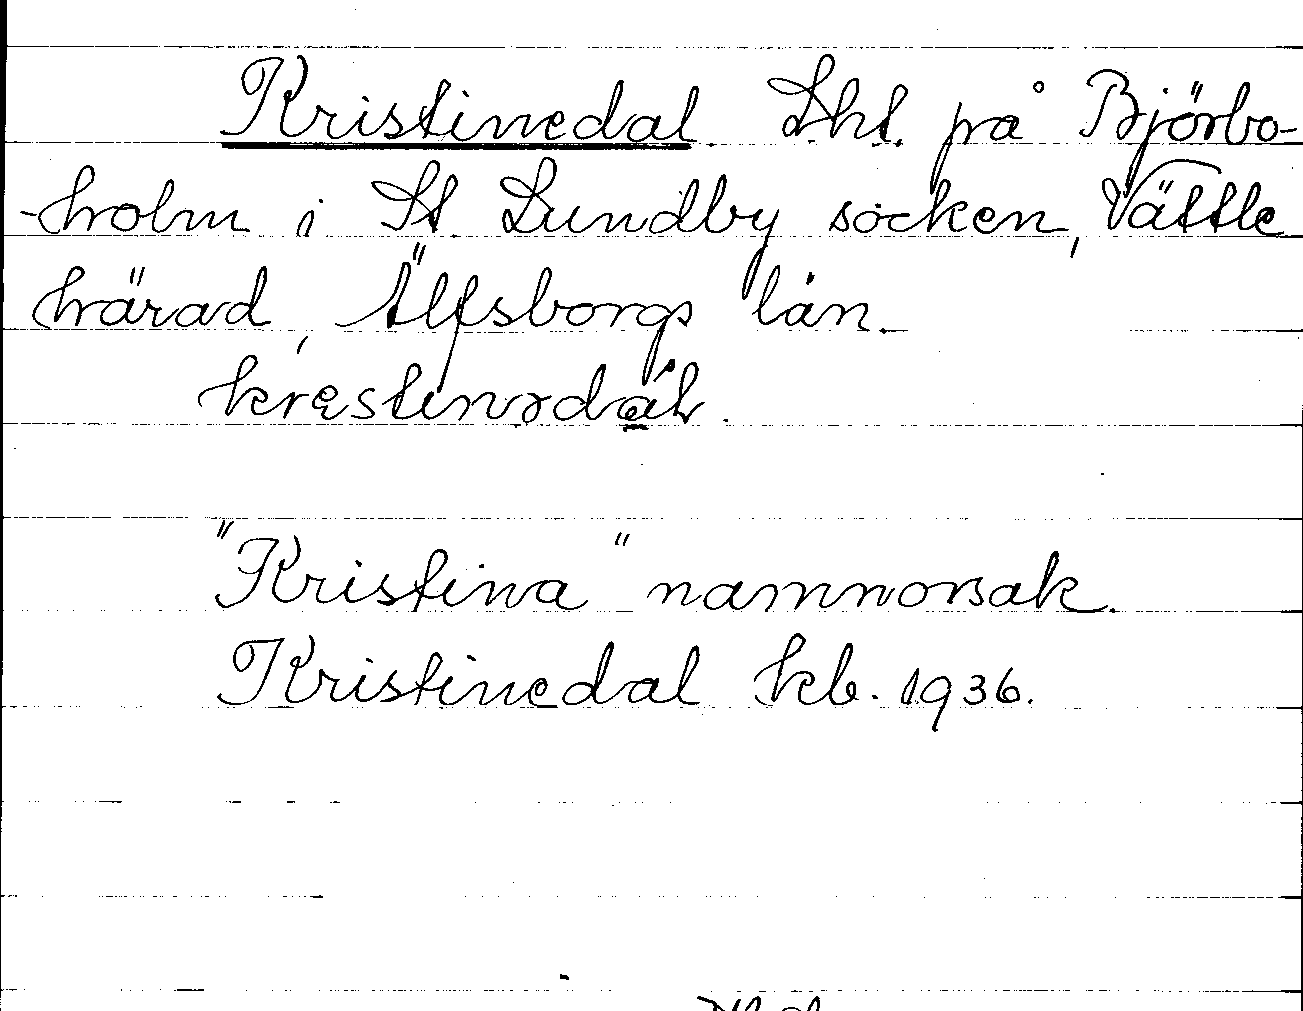 Kristinedal Lht. på Björbo-
-holm i St. Lundby socken, Vättle
härad, Älfsborgs län.
"Kristina" namnorsak.
Kristinedal kb. 1936.